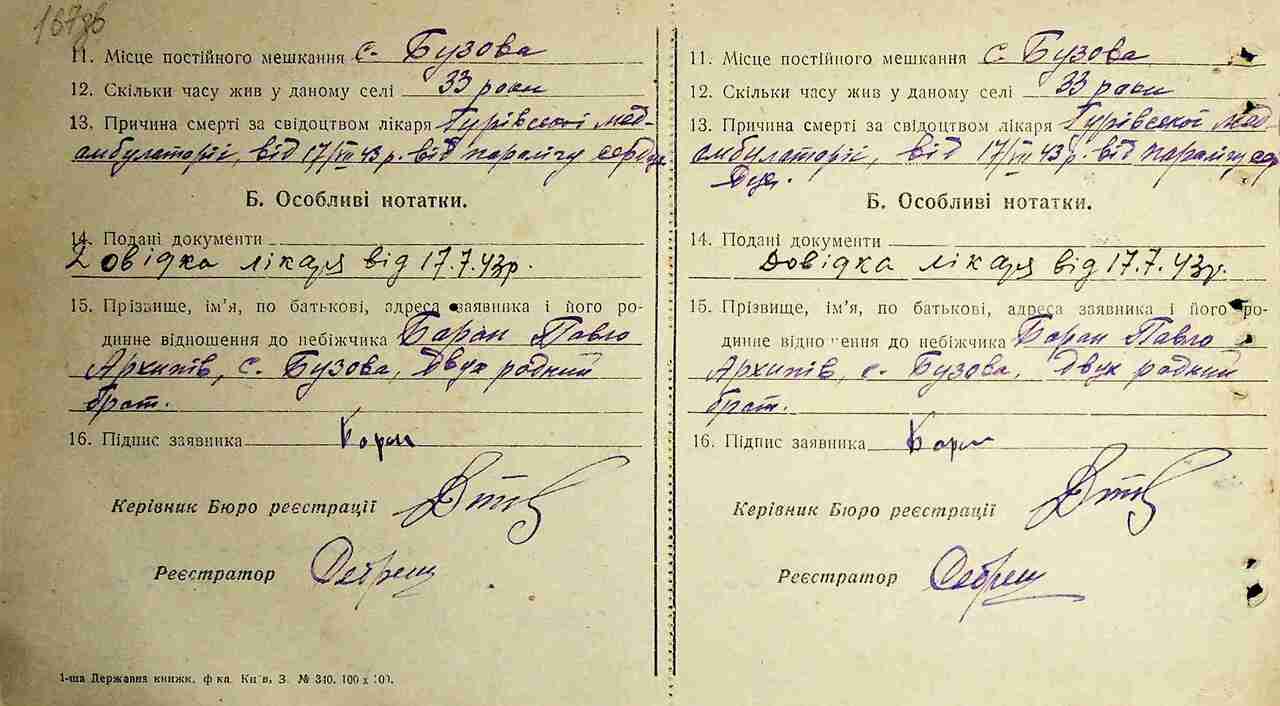 167зв
11. Місце постійного мешкання с. Бузова
12. Скільки часу жив у даному селі 33 роки
13. Причина смерті за свідоцтвом лікаря Гурівської мед-
амбулаторіє, від 17/VII 43 р. від паралічу сердця
Б. Особливі нотатки.
14. Подані документи
Довідка лікаря від 17.7.43р.
15. Прізвище, ім'я, по батькові, адреса заявника і його ро-
динне відношення до небіжчика Баран Павло
Архипів, с. Бузова, Двух родний
брат.
16. Підпис заявника Баран
Керівник Бюро реєстрації
Реєстратор
1-ша Державна книжк. ф-ка. Київ, З. № 340. 100 х 100.
11. Місце постійного мешкання с. Бузова
12. Скільки часу жив у даному селі 33 роки
13. Причина смерті за свідоцтвом лікаря Гурівської мед
амбулаторіє, від 17/VII 43 р. від паралічу сер
дця.
Б. Особливі нотатки.
14. Подані документи
Довідка лікаря від 17.7.43р.
15. Прізвище, ім'я, по батькові, адреса заявника і його ро-
динне відношення до небіжчика Баран Павло
Архипів, с. Бузова, Двух родний
брат.
16. Підпис заявника Баран
Керівник Бюро реєстрації
Реєстратор